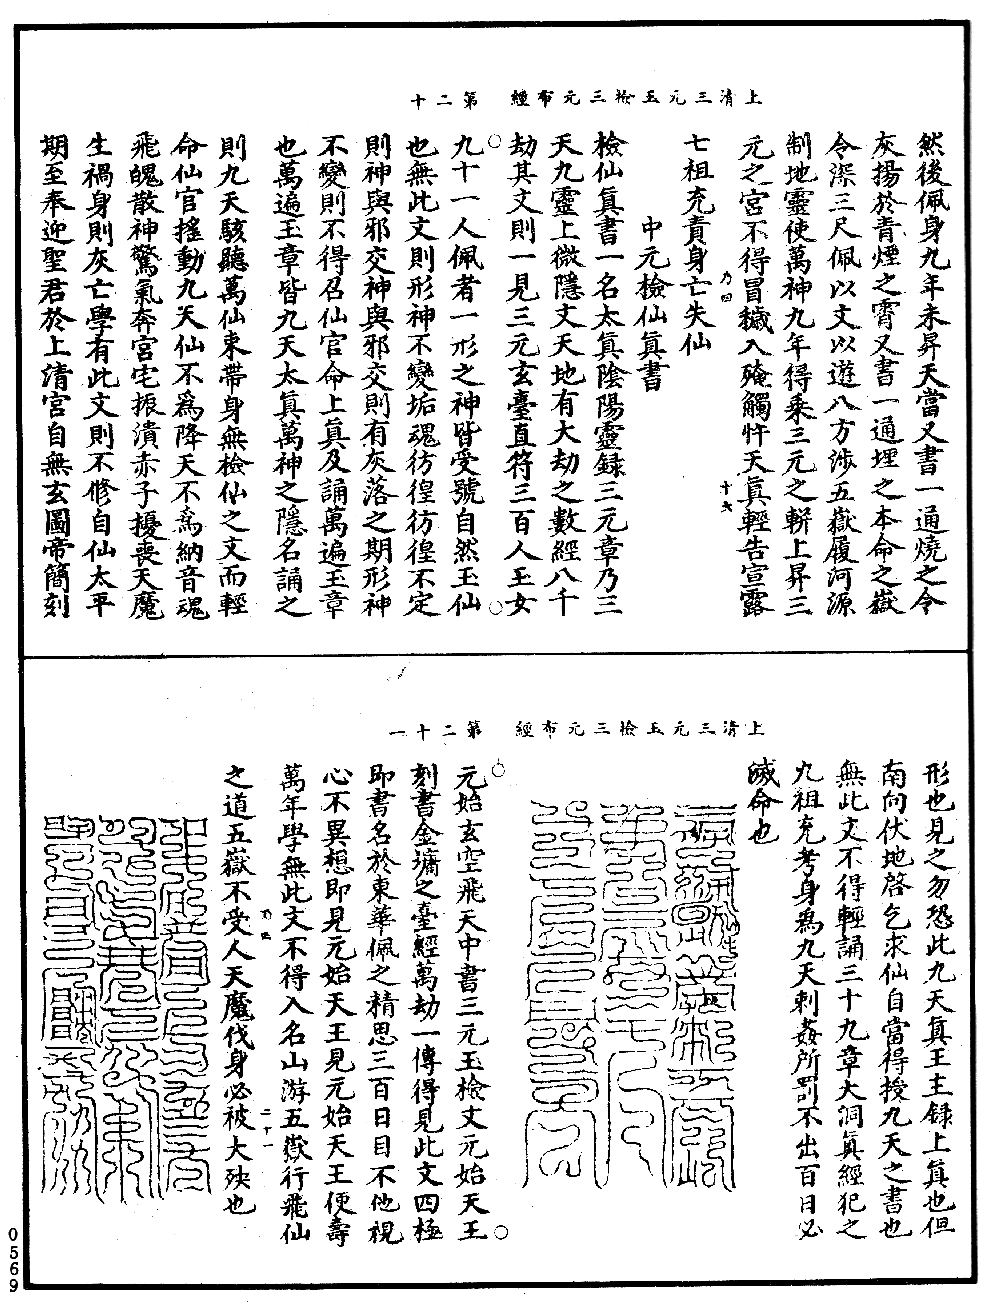 上清三元玉檢三元布經　第二十
然後佩身九年未昇天當又書一通燒之令
灰揚於青煙之霄又書一通埋之本命之嶽
令深三尺佩以文以遊八方涉五嶽履河源
制地靈使萬神九年得乘三元之輧上昇三
元之宮不得冒穢入殗觸忤天真輕告宣露
乃四　十六
七祖充責身亡失仙
中元檢仙真書
檢仙真書一名太真陰陽靈録三元章乃三
天九靈上微隱文天地有大劫之數經八千
劫其文則一見三元玄臺直符三百人玉女
九十一人佩者一形之神皆受號自然玉仙
也無此文則形神不變垢魂彷徨彷徨不定
則神與邪交神與邪交則有灰落之期形神
不變則不得召仙官命上真及誦萬遍玉章
也萬遍玉章皆九天太真萬神之隱名誦之
則九天駭聽萬仙束帶身無檢仙之文而輕
命仙官搖動九天仙不為降天不為納音魂
飛魄散神驚氣奔宮宅振潰赤子擾喪天魔
生禍身則灰亡學有此文則不修自仙太平
期至奉迎聖君於上清宮自無玄圖帝簡刻
上清三元玉檢三元布經　第二十一
形也見之勿恐此九天真王主録上真也但
南向伏地啓乞求仙自當得授九天之書也
無此文不得輕誦三十九章大洞真經犯之
九祖充考身為九天刺姦所罰不出百日必
滅命也
元始玄空飛天中書三元玉檢文元始天王
刻書金墉之臺經萬劫一傳得見此文四極
即書名於東華佩之精思三百日目不他視
心不異想即見元始天王見元始天王便壽
萬年學無此文不得入名山游五嶽行飛仙
乃四　二十一
之道五嶽不受人天魔伐身必被大殃也
0569